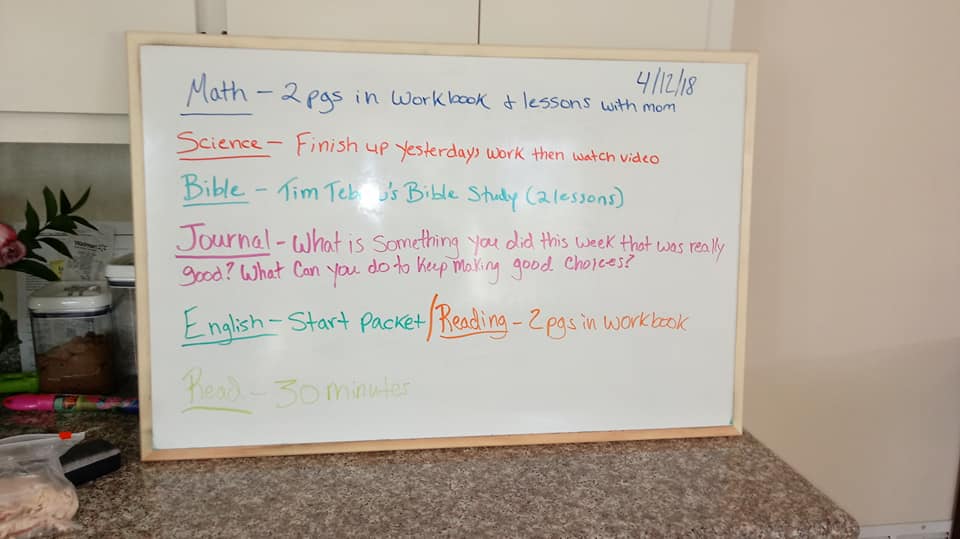 4/12/18
Math - 2 pgs in workbook & lessons with mom
Science - Finish up yesterdays work then watch video
Bible - Tim 's Bible Study (2 lessons)
Journal - What is something you did this week that was really
good? What can you do to keep making good choices?
English - Start packet / Reading - 2 pgs in workbook
Read - 30 minutes